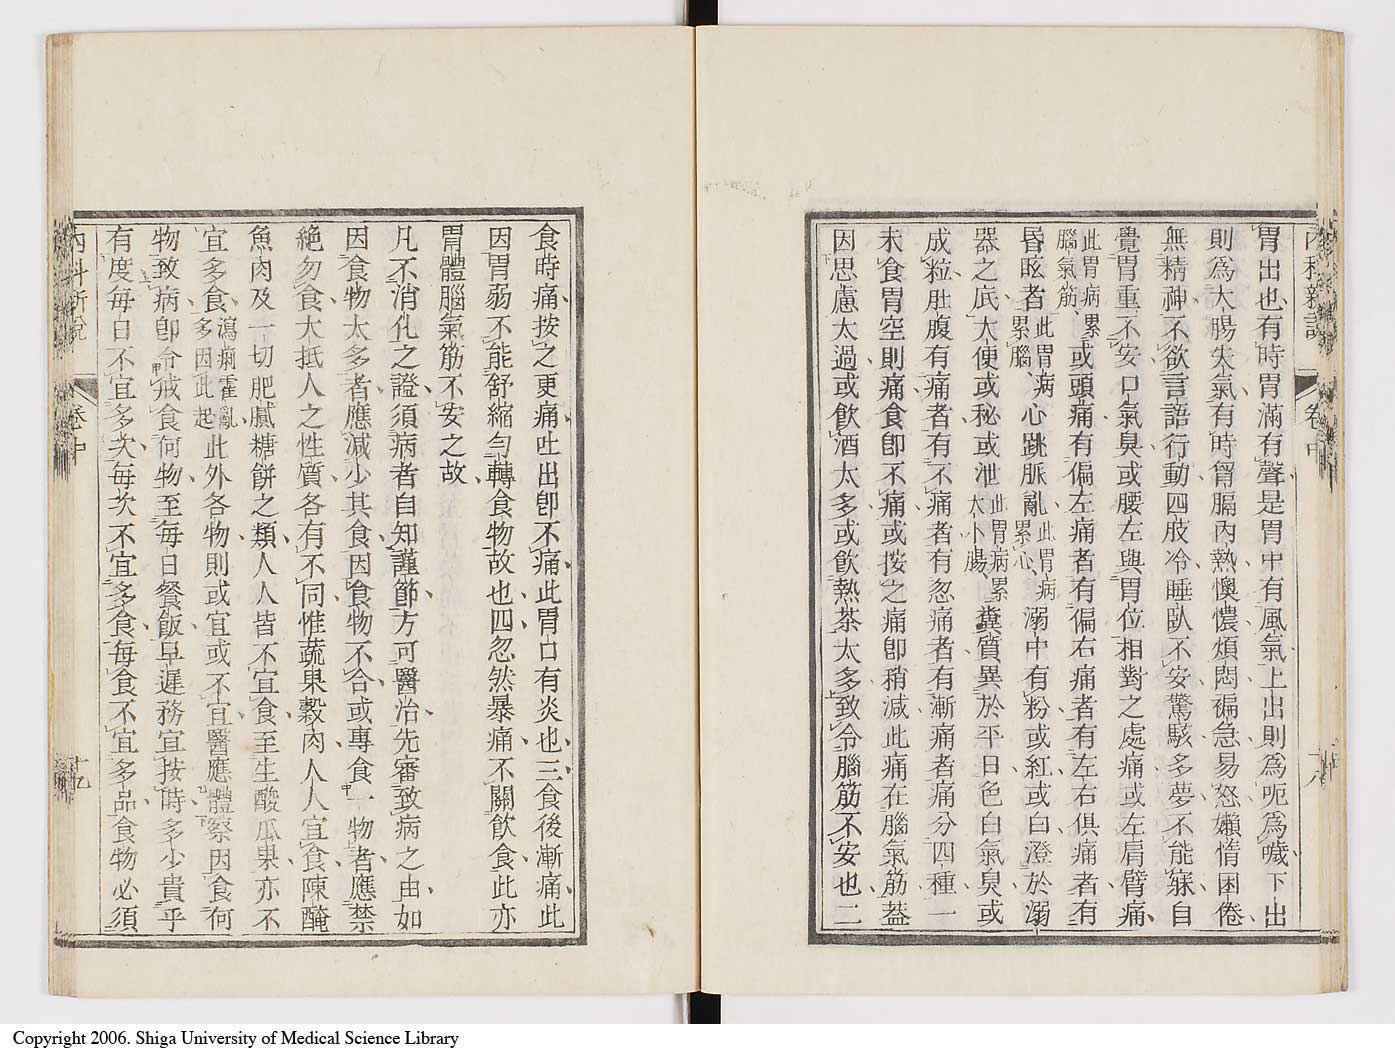 內科新說
卷中
十八
胃出也、有時胃滿有聲、是胃中有風氣、上出則爲呃爲噦、下出
則爲大腸失氣、有時胃膈內熱、懊憹煩悶、褊急易怒、嬾惰困倦、
無精神、不欲言語行動、四肢冷、睡臥不安、驚駭多夢、不能寐、自
覺胃重不安、口氣臭、或腰左與胃位相對之處痛、或左肩臂痛、
此胃病累腦氣筋、或頭痛、有偏左痛者、有偏右痛者、有左右俱痛者、有
昏眩者、此胃病累腦、心跳脈亂、此胃病累心、溺中有粉、或紅或白、澄於溺
器之底、大便或秘或泄、此胃病累大小腸、糞質異於平日、色白氣臭、或
成粒、肚腹有痛者、有不痛者、有忽痛者、有漸痛者、痛分四種、一
未食胃空則痛、食卽不痛、或按之痛卽稍減、此痛在腦氣筋、蓋
因思慮太過、或飮酒太多、或飮熱茶太多、致令腦筋不安也、二
食時痛、按之更痛、吐出卽不痛、此胃口有炎也、三食後漸痛、此
因胃弱不能舒縮勻轉食物故也、四忽然暴痛、不關飮食、此亦
胃體腦氣筋不安之故
凡不消化之證、須病者自知謹節、方可醫治、先審致病之由、如
因食物太多者、應減少其食、因食物不合、或專食一物者、應禁
絕勿食、大抵人之性質、各有不同、惟蔬果穀肉、人人宜食、陳醃
魚肉及一切肥膩糖餅之類、人人皆不宜食、至生酸瓜果、亦不
宜多食、瀉痢霍亂多因此起此外各物、則或宜或不宜、醫應體察因食何
物致病、卽令戒食何物、至每日餐飯早遲、務宜按時、多少貴乎
有度、每日不宜多次、每次不宜多食、每食不宜多品、食物必須
內科新說
卷中
十九
Copyright 2006. Shiga University of Medical Science Library